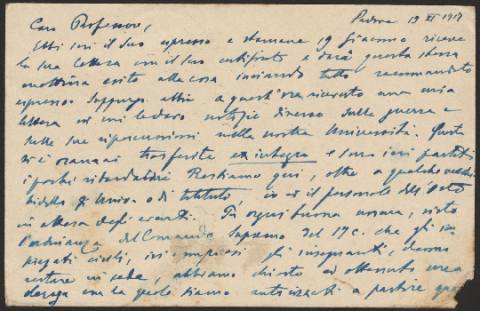 Padova 19 XI 1917
Caro Professore,
Ebbi ieri il Suo espresso e stamane 19 Giacomo riceve
la sua lettera con il suo certificato e darà questa stessa
mattina esito alla cosa inviando tutto raccomandato
espresso. Suppongo abbia a quest'ora ricevuto una mia
lettera in cui le davo notizie diverse sulla guerra e
sulle sue ripercussioni nella nostra Università. Questa
si è oramai trasferita ex integro e sono ieri partiti
i pochi ritardatari. Restiamo qui, oltre a qualche vecchio
bidello di Univ. o di Istituto, io ed il personale dell'
in attesa degli eventi. Per ogni buona norma, visto
l'ordinanza del Comando Supremo del 17 c. che gli im
piegati civili, ivi compresi gli insegnanti, devono
restare in sede, abbiamo chiesto ed ottenuto una
deroga con la quale siamo autorizzati a partire